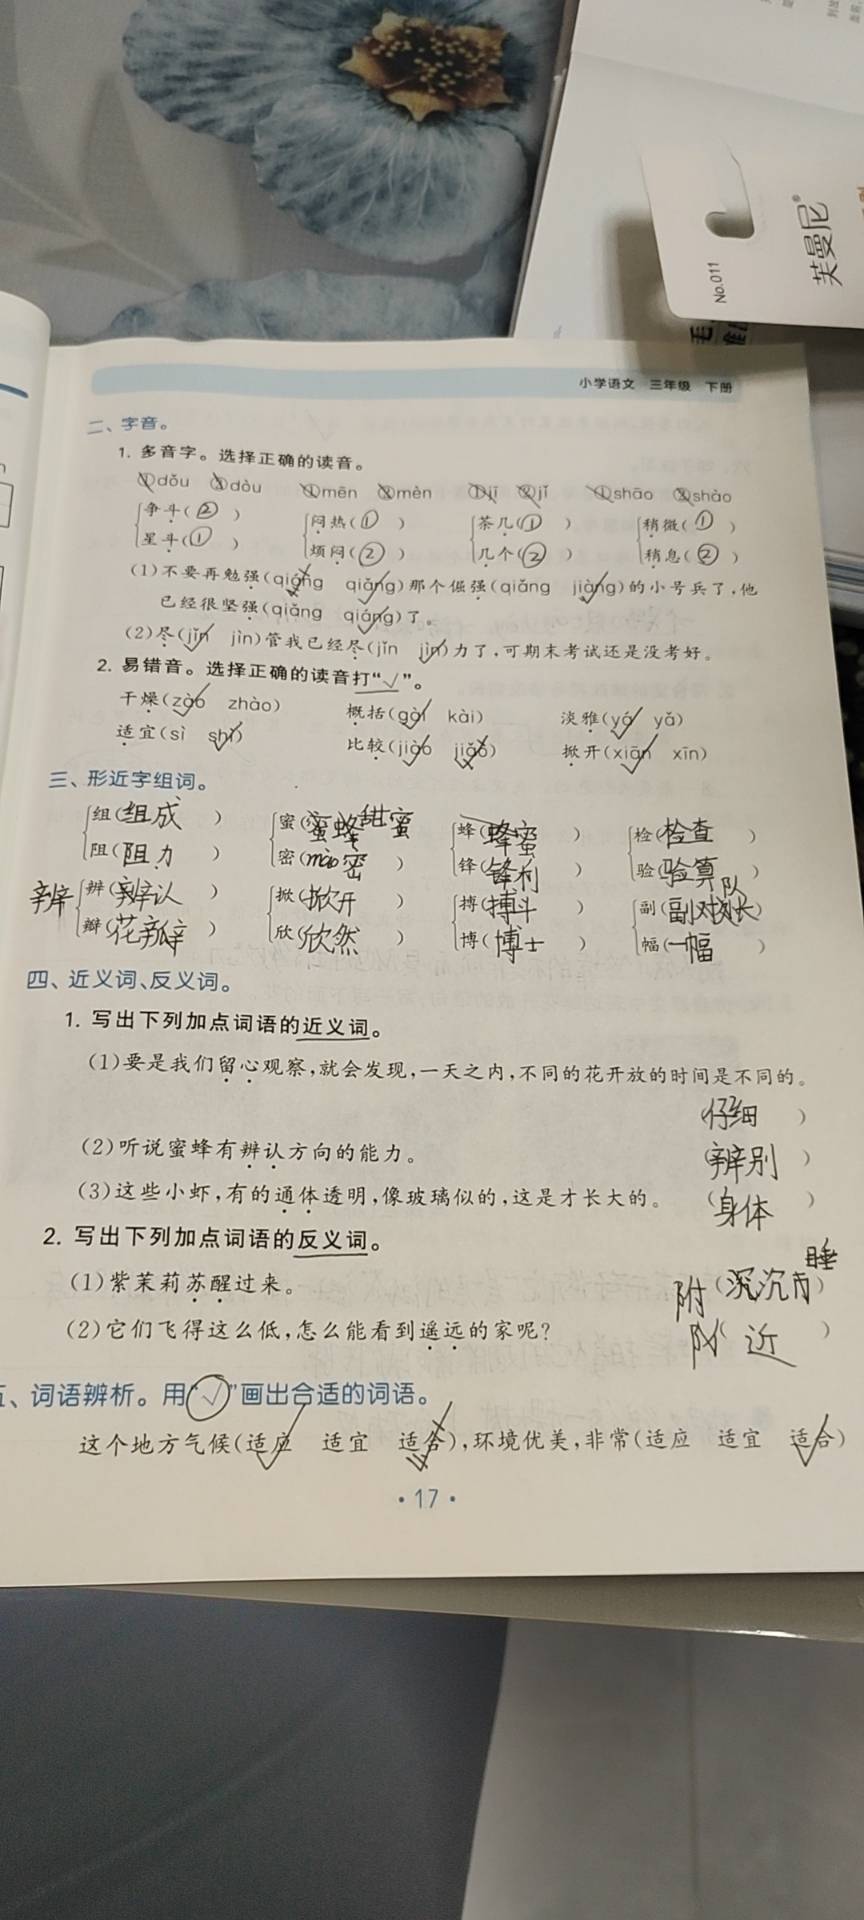 芙曼尼®
No.011
小学语文 三年级 下册
二、字音。
1. 多音字。选择正确的读音。
①dǒu ②dòu ①mēn ②mèn ①jī ②jǐ ①shāo ②shào
争斗(②) 闷热(①) 茶几(①) 稍微(①)
星斗(①) 烦闷(②) 几个(②) 稍息(②)
(1)不要再勉强(qiǎng qiáng)那个倔强(qiǎng jiàng)的小号兵了,他
已经很坚强(qiǎng qiáng)了。
(2)尽(jǐn jìn)管我已经尽(jǐn jìn)力了,可期末考试还是没考好。
2. 易错音。选择正确的读音打“√”。
干燥(zào zhào) 概括(gài kài) 淡雅(yǎ yǎ)
适宜(sì shì) 比较(jiào jiǎo) 掀开(xiān xīn)
三、形近字组词。
组(组成) 蜜(蜜蜂 甜蜜 蜂(蜂蜜) 检(检查)
阻(阻力) 密(mào密) 锋(锋利) 验(验算)
辨 辨(辨认) 掀(掀开) 搏(搏斗) 副(副队长)
瓣(花瓣) 欣(欣然) 博(博士) 幅(一幅)
四、近义词、反义词。
1. 写出下列加点词语的近义词。
(1)要是我们留心观察,就会发现,一天之内,不同的花开放的时间是不同的。
(仔细)
(2)听说蜜蜂有辨认方向的能力。 (辨别)
(3)这些小虾,有的通体透明,像玻璃似的,这是才长大的。 (身体)
2. 写出下列加点词语的反义词。
(1)紫茉莉苏醒过来。 (沉 睡)
(2)它们飞得这么低,怎么能看到遥远的家呢? 附 近)
、词语辨析。用“√”画出合适的词语。
这个地方气候(适应 适宜 适合),环境优美,非常(适应 适宜 适合)
·17·